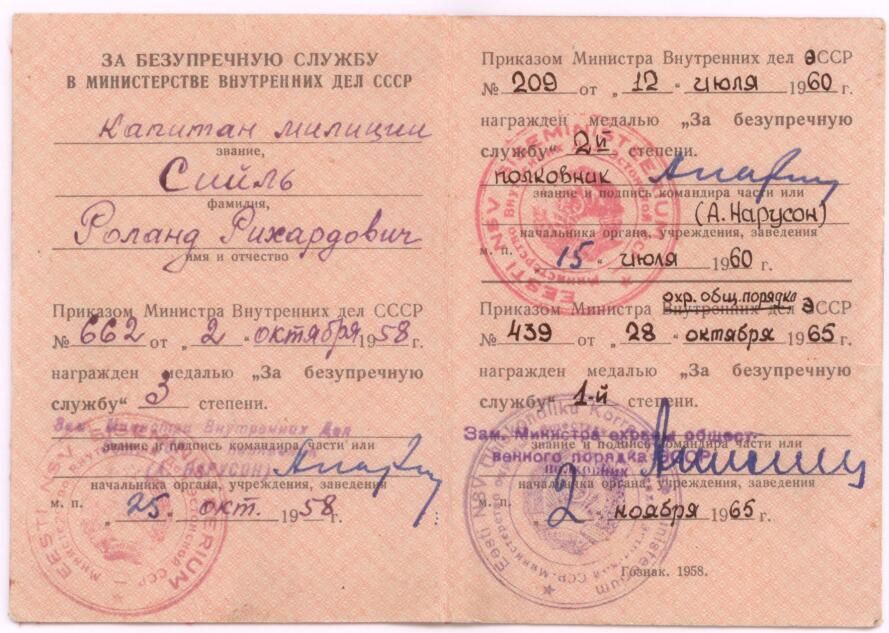 ЗА БЕЗУПРЕЧНУЮ СЛУЖБУ
В МИНИСТЕРСТВЕ ВНУТРЕННИХ ДЕЛ СССР
Капитан милиции
звание,
Сийль
фамилия,
Роланд Рихардович
имя и отчество
Приказом Министра Внутренних дел СССР
№ 662 от „ 2 “ октября 1958 г.
награжден медалью „За безупречную
службу“ 3 степени.
Зам. Министра Внутренних Дел
звание и подпись командира части или
(А. НАРУСОН)
начальника органа, учреждения, заведения
м. п.
„ 25 “ окт. 1958 г.
EESTI NSV
Приказом Министра Внутренних дел ЭССР
№ 209 от „ 12 “ июля 1960 г.
награжден медалью „За безупречную
службу“ 2й степени.
полковник
звание и подпись командира части или
(А. Нарусон)
начальника органа, учреждения, заведения
м. п. 15 “ июля 1960 г.
EESTI NSV SISEMINISTEERIUM
Министерство Внутренних Эстонской ССР
охр. общ. порядка
Приказом Министра Внутренних дел ЭССР
№ 439 от „ 28 “ октября 1965 г.
награжден медалью „За безупречную
службу“ 1-й степени.
Зам. Министра охраны общест-
звание и подпись командира части или
венного порядка ЭССР
начальника органа, учреждения, заведения
м. п.
„ 2 “ ноября 1965 г.
Eesti NSV Ühiskondliku Korra Ministeerium
Гознак. 1958.